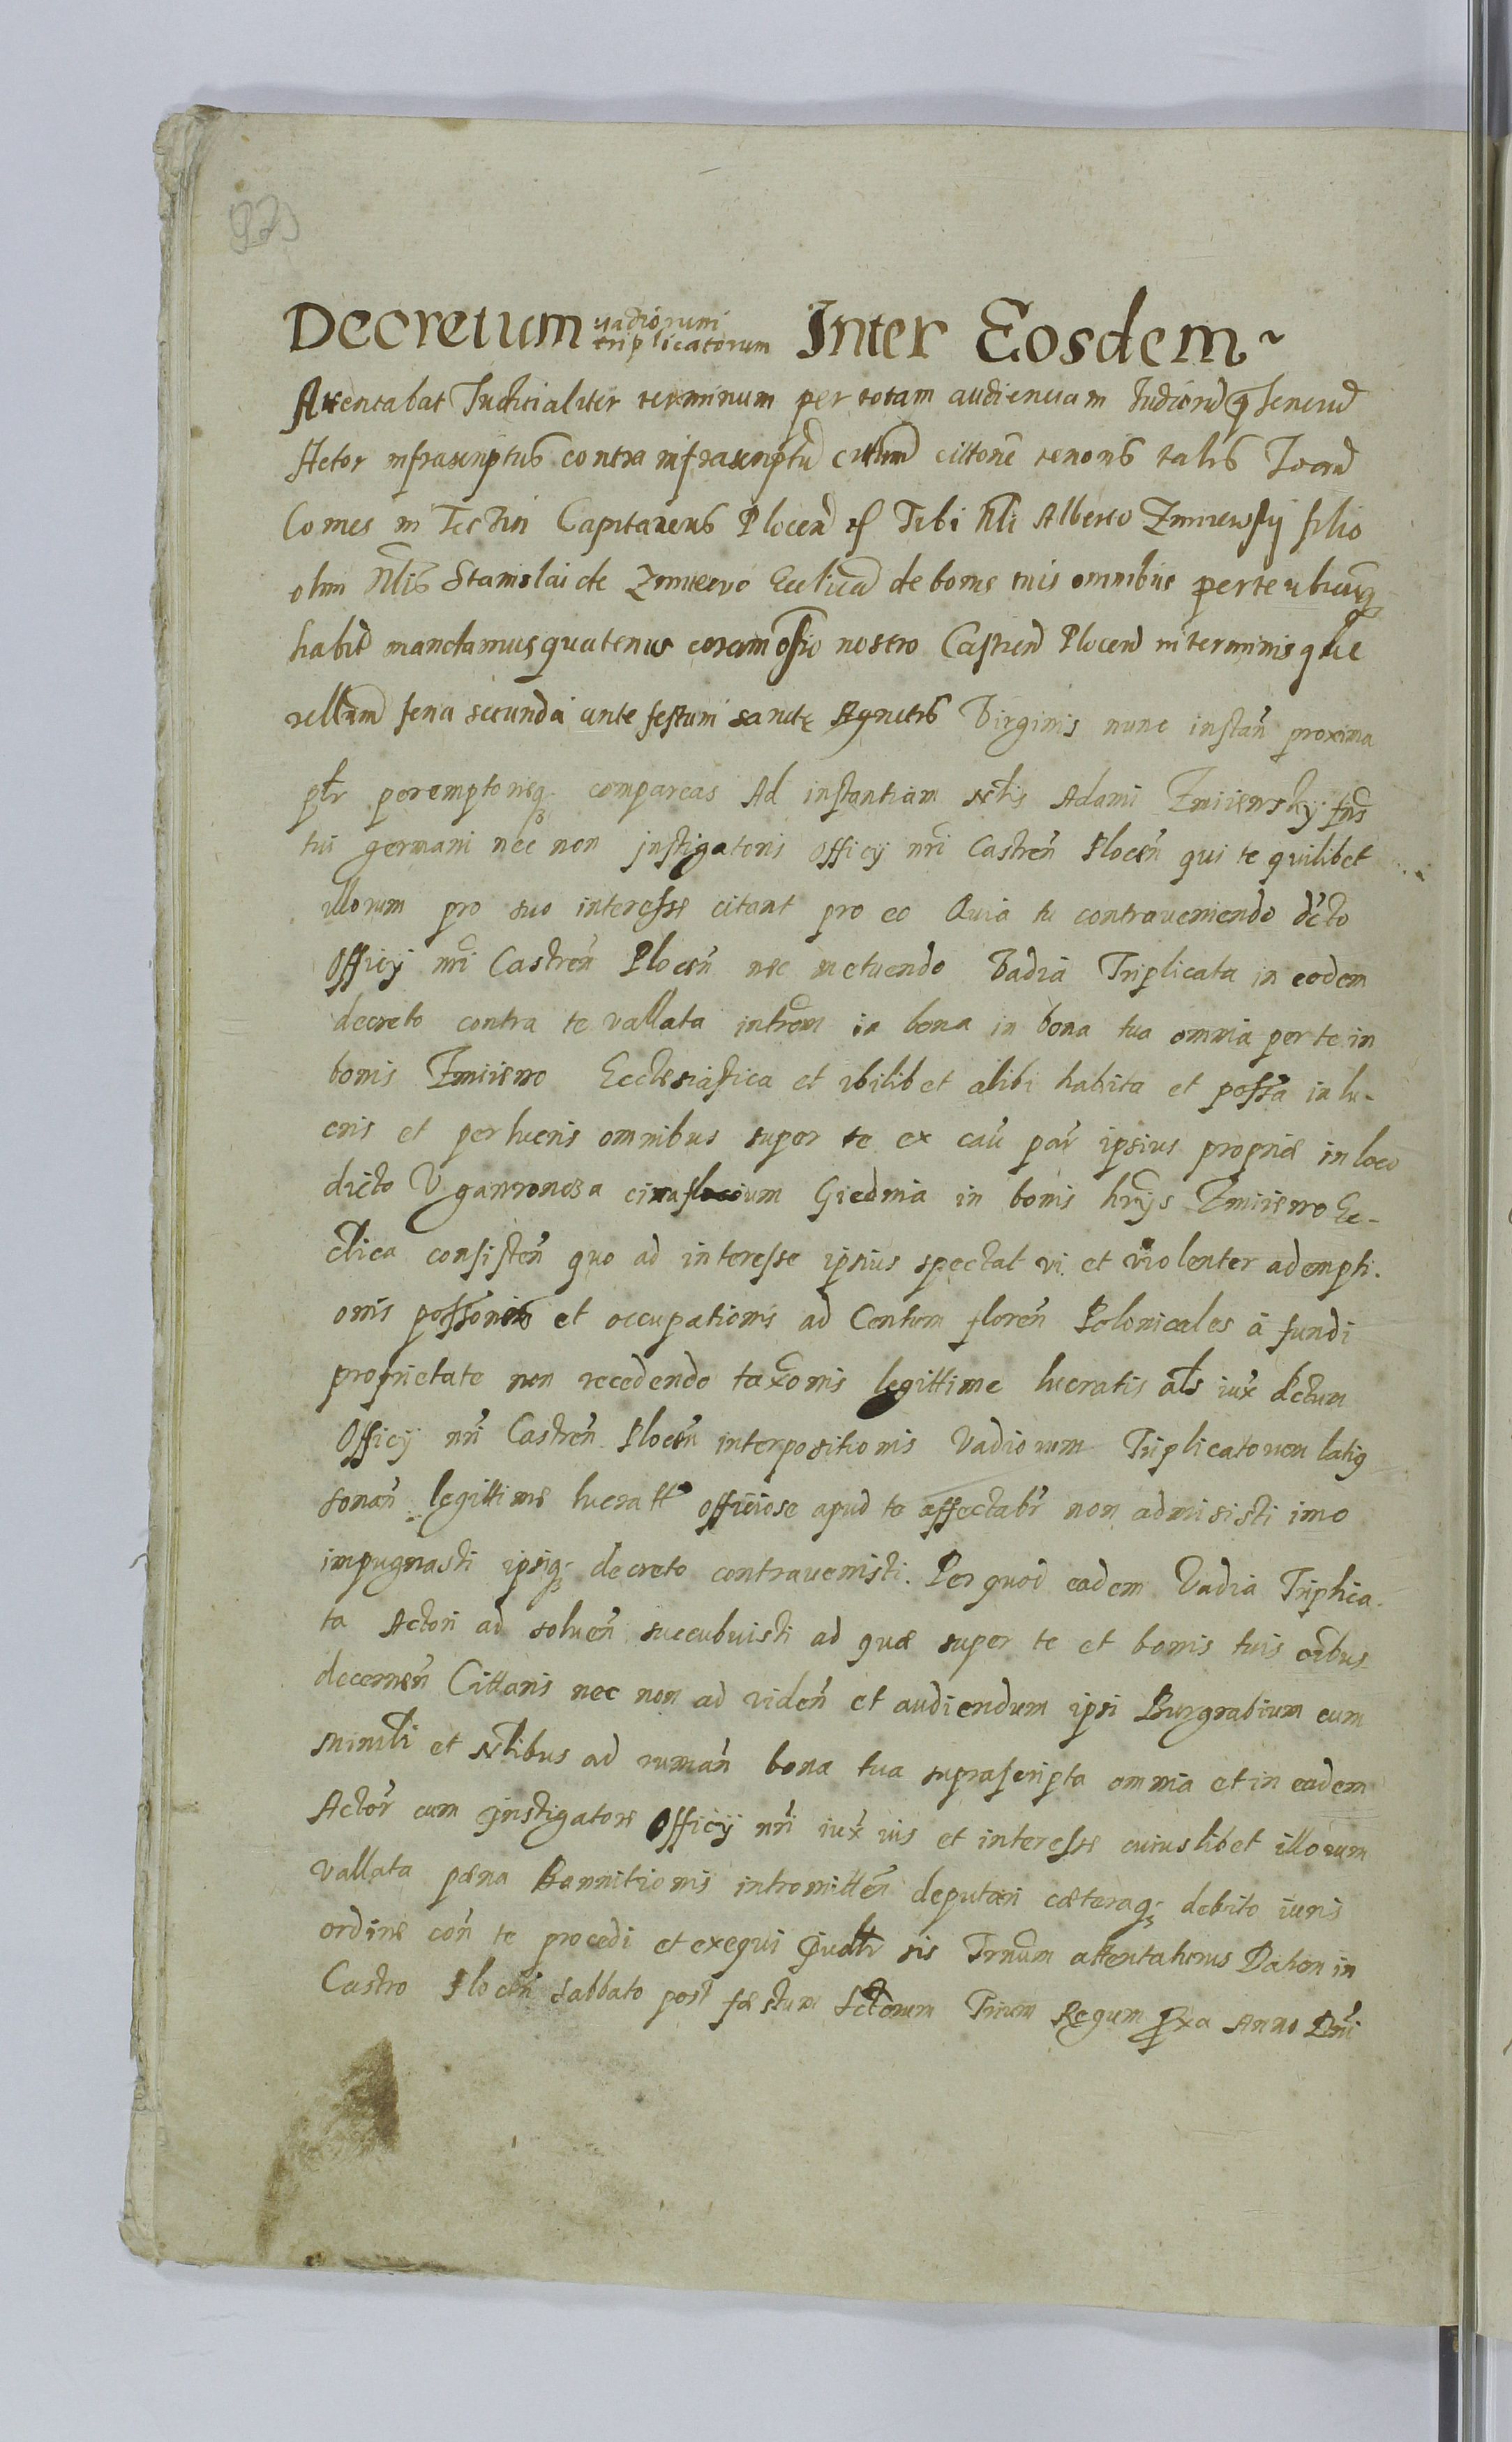 Decretum vadiorum triplicatorum Inter Eosdem
Attentabat Juditialiter terminum per totam audienciam Judiciorũ
Actor infrascriptus contra infrascriptũ citatũ cittonẽ tenoris talis Joanẽ
Comes in Tectin Capitaneus Plocen̄ Tibi Nli Alberto Zmiiewsky filio
olim Nlis Stanislai de Zmiiewo Ecclica de bonis tuis omnibus per te ubicunq
habit mandamus quatenus coram offio nostro Castren̄ Plocen̄ in terminis que
rellarũ feria secunda ante festum sanctę Agnetis Virginis nunc instan̄ proxima
pltr peremptorieq; compareas Ad instantiam Nlis Adami Zmiiensky fris
tui germani nec non instigatoris Officij nri Castren̄ Plocen̄ qui te quilibet
illorum pro suo interesse citant pro eo Quia tu contraveniendo dcto
Officij nri Castren̄ Plocen̄ nec metuendo Vadia Triplicata in eodem
decreto contra te vallata introm in bona in bona tua omnia per te in
bonis Zmiiewo Ecclesiastica et ubilibet alibi habita et possa in lu-
cris et perlucris omnibus super te ex cau par ipsius propriæ in loco
dicto Ugawroncza circa fluvium Giednia in bonis hrijs Zmiiewo Ec-
clica consisten̄ quo ad interesse ipsius spectat vi et violenter adempti.
onis possonis et occupationis ad Centum floren̄ Polonicales à fundi
proprietate non recedendo taxonis legittime lucratis als iux dctum
Officij nri Castren̄ Plocen̄ interpositionis Vadiorum Triplicatorum latiq
sonan̄ legittime lucratt officiose apud te affectabr non admisisti imo
impugnasti ipsiq; decreto contravenisti. Per quod eadem Vadia Triplica.
ta Actori ad soluen̄ succubuisti ad quæ super te et bonis tuis oibus
decernen̄ Cittaris nec non ad viden̄ et audiendum ipsi Burgrabium cum
Ministli et Nlibus ad ruman̄ bona tua suprascripta omnia et in eadem
Actor̄ cum Instigatore Officij nri iux ius et interesse cuiuslibet illorum
vallata pæna Bannitionis intromitten̄ deputari cæteraq; debito iuris
ordine con̄ te procedi et exequi Qualtr sis Trnum attentaturus Datum in
Castro Plocen̄ Sabbato post fæstum Sctorum Trium Regum pxa Anno Dni